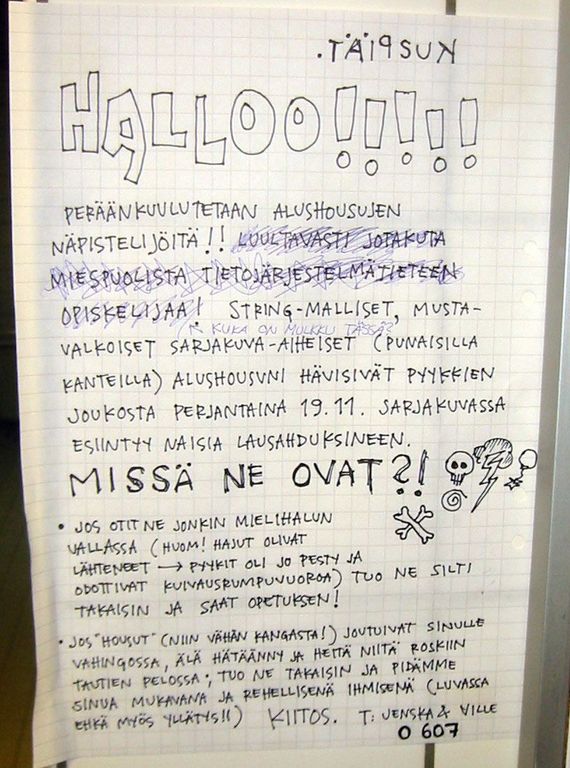 KUSPIÄT.
HALLOO!!!!!
PERÄÄNKUULUTETAAN ALUSHOUSUJEN
NÄPISTELIJÖITÄ!! LUULTAVASTI JOTAKUTA
MIESPUOLISTA TIETOJÄRJESTELMÄTIETEEN
OPISKELIJAA! STRING-MALLISET, MUSTA-
KUKA ON MULKKU TÄSSÄ?
VALKOISET SARJAKUVA-AIHEISET (PUNAISILLA
KANTEILLA) ALUSHOUSUNI HÄVISIVÄT PYYKKIEN
JOUKOSTA PERJANTAINA 19.11. SARJAKUVASSA
ESIINTYY NAISIA LAUSAHDUKSINEEN.
MISSÄ NE OVAT?!
• JOS OTIT NE JONKIN MIELIHALUN
VALLASSA (HUOM! HAJUT OLIVAT
LÄHTENEET → PYYKIT OLI JO PESTY JA
ODOTTIVAT KUIVAUSRUMPUVUOROA) TUO NE SILTI
TAKAISIN JA SAAT OPETUKSEN!
• JOS "HOUSUT" (NIIN VÄHÄN KANGASTA!) JOUTUIVAT SINULLE
VAHINGOSSA, ÄLÄ HÄTÄÄNNY JA HEITÄ NIITÄ ROSKIIN
TAUTIEN PELOSSA; TUO NE TAKAISIN JA PIDÄMME
SINUA MUKAVANA JA REHELLISENÄ IHMISENÄ (LUVASSA
EHKÄ MYÖS YLLÄTYS!!) KIITOS. T: JENSKA & VILLE
O 607